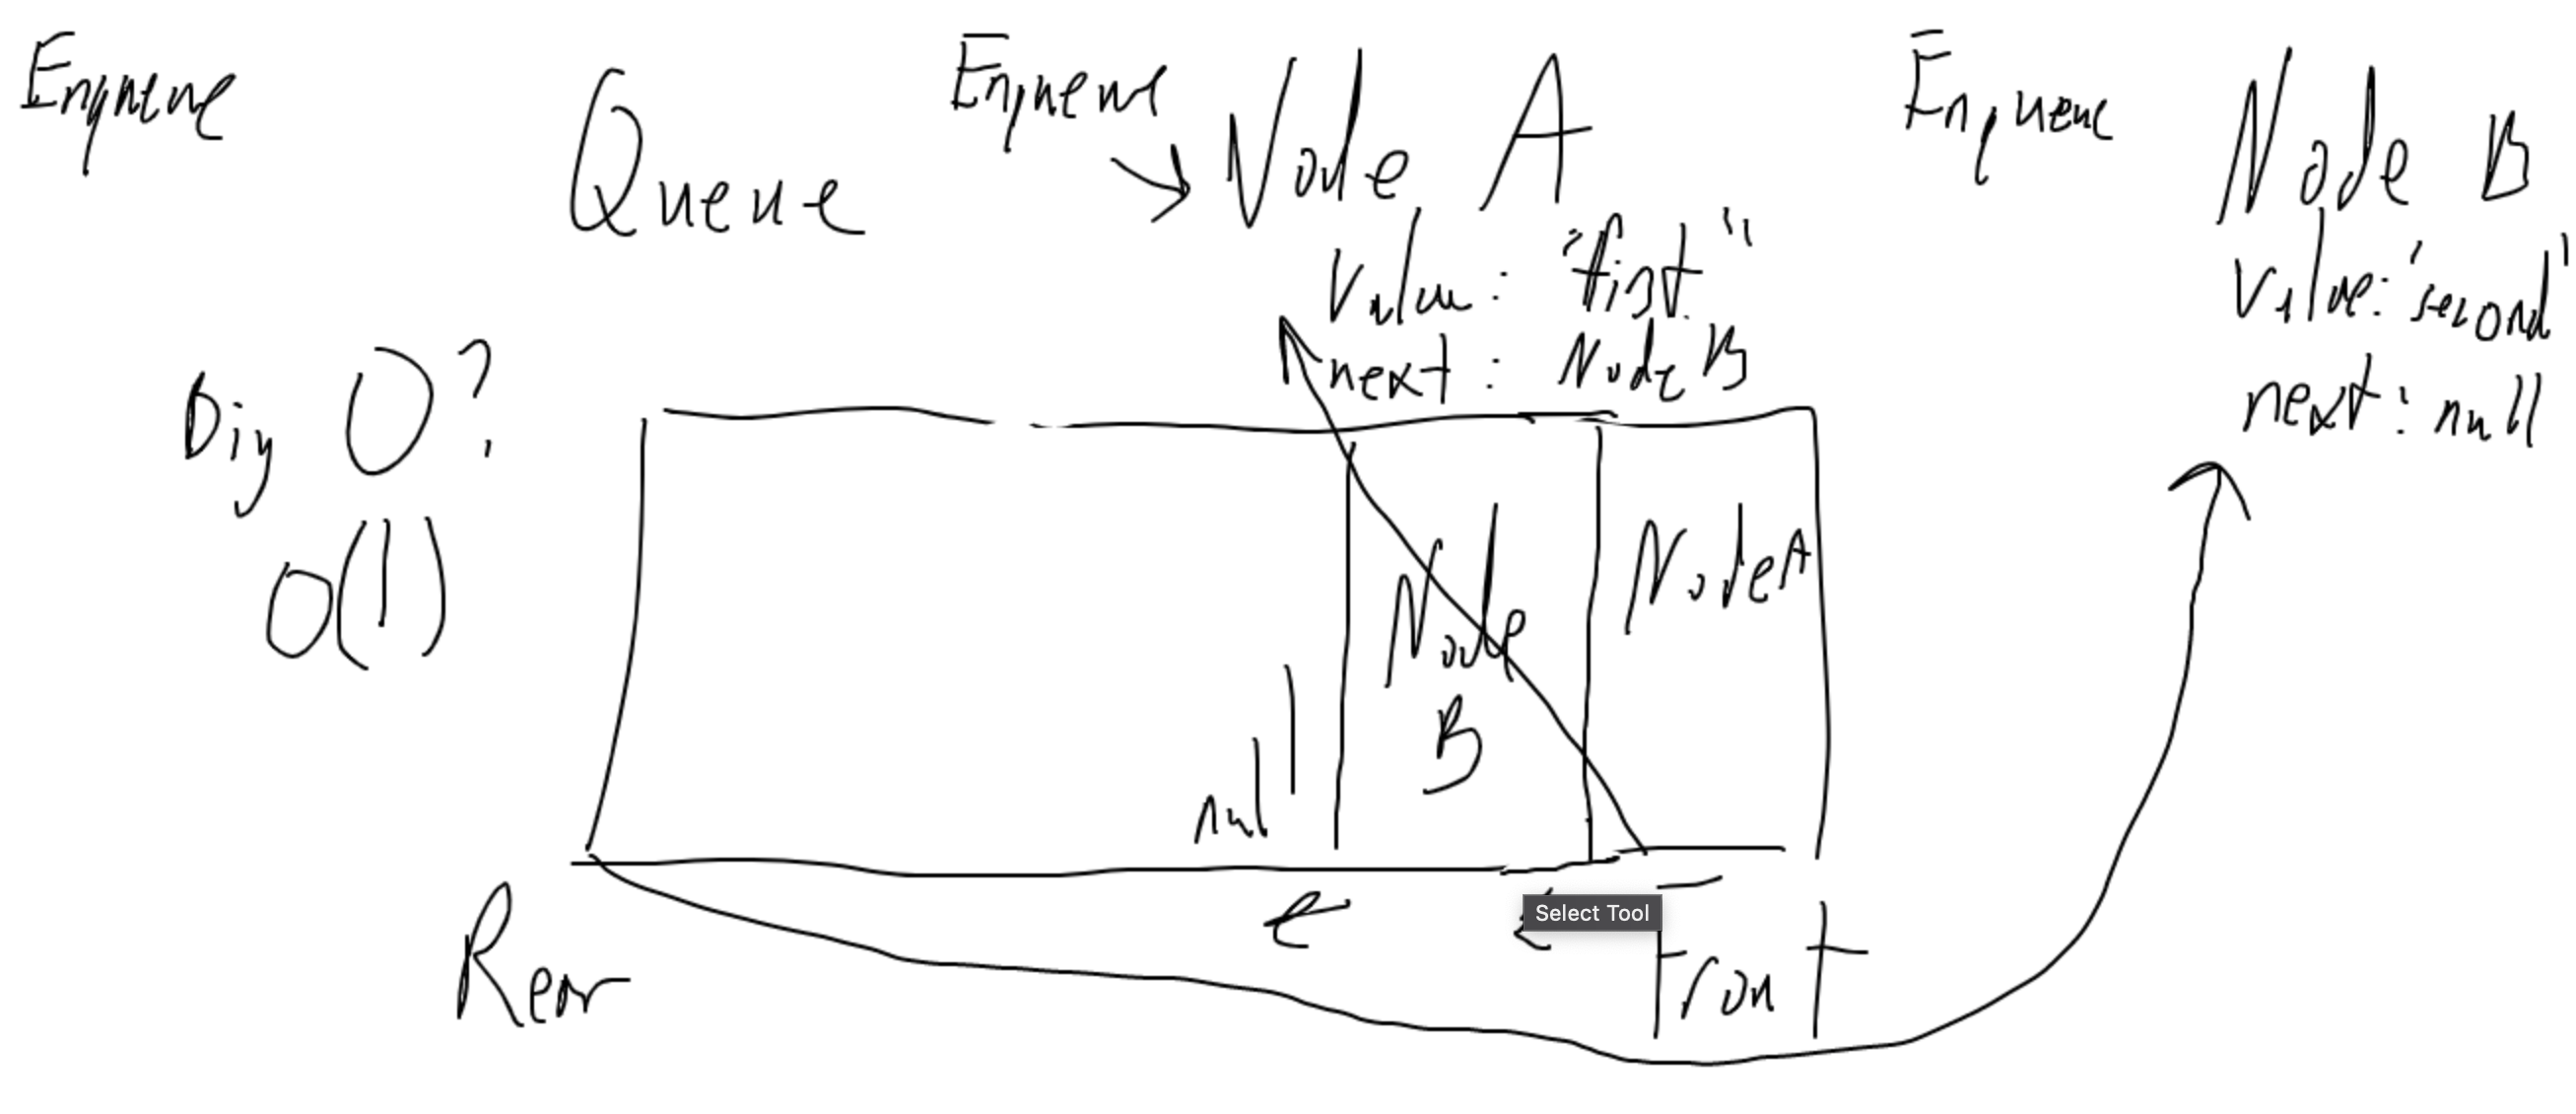 Enqueue
Queue
Enqueue
Node A
value: "first"
next: Node B
Enqueue
Node B
value: "second"
next: null
Big O?
O(1)
null
Node
B
Node A
Rear
Select Tool
Front